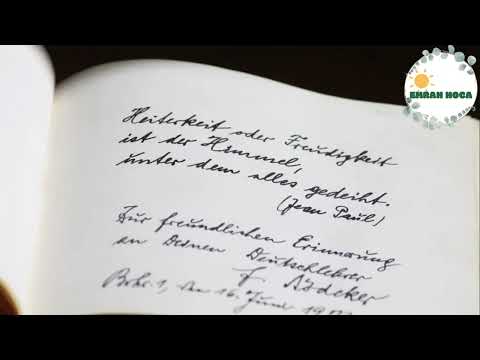 EMRAH HOCA
Heiterkeit oder Freudigkeit
ist der Himmel,
unter dem alles gedeiht.
(Jean Paul)
Zur freundlichen Erinnerung
an Deinen Deutschlehrer
F.
den 16. Juni